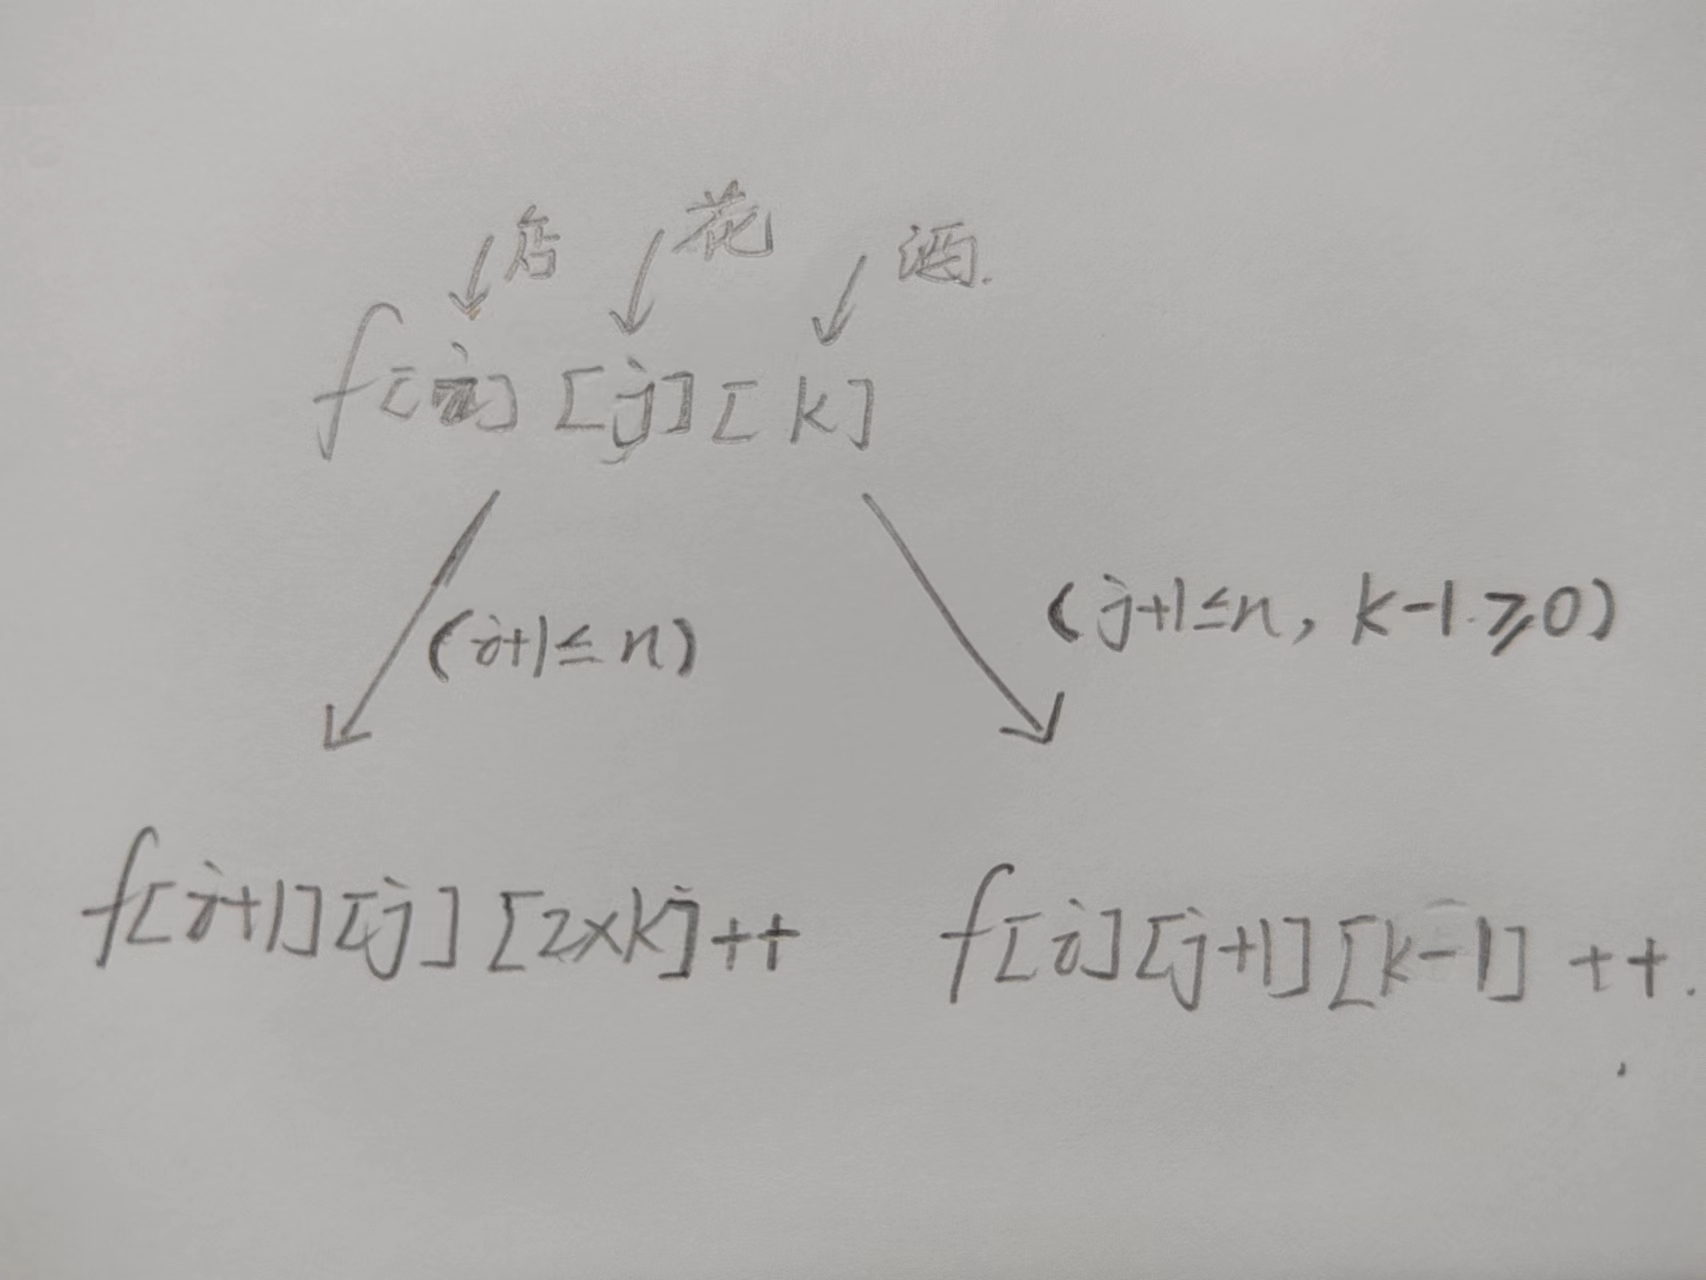 店 花 酒.
f[i][j][k]
(i+1≤n) (j+1≤n, k-1≥0)
f[i+1][j][2×k]++ f[i][j+1][k-1]++.